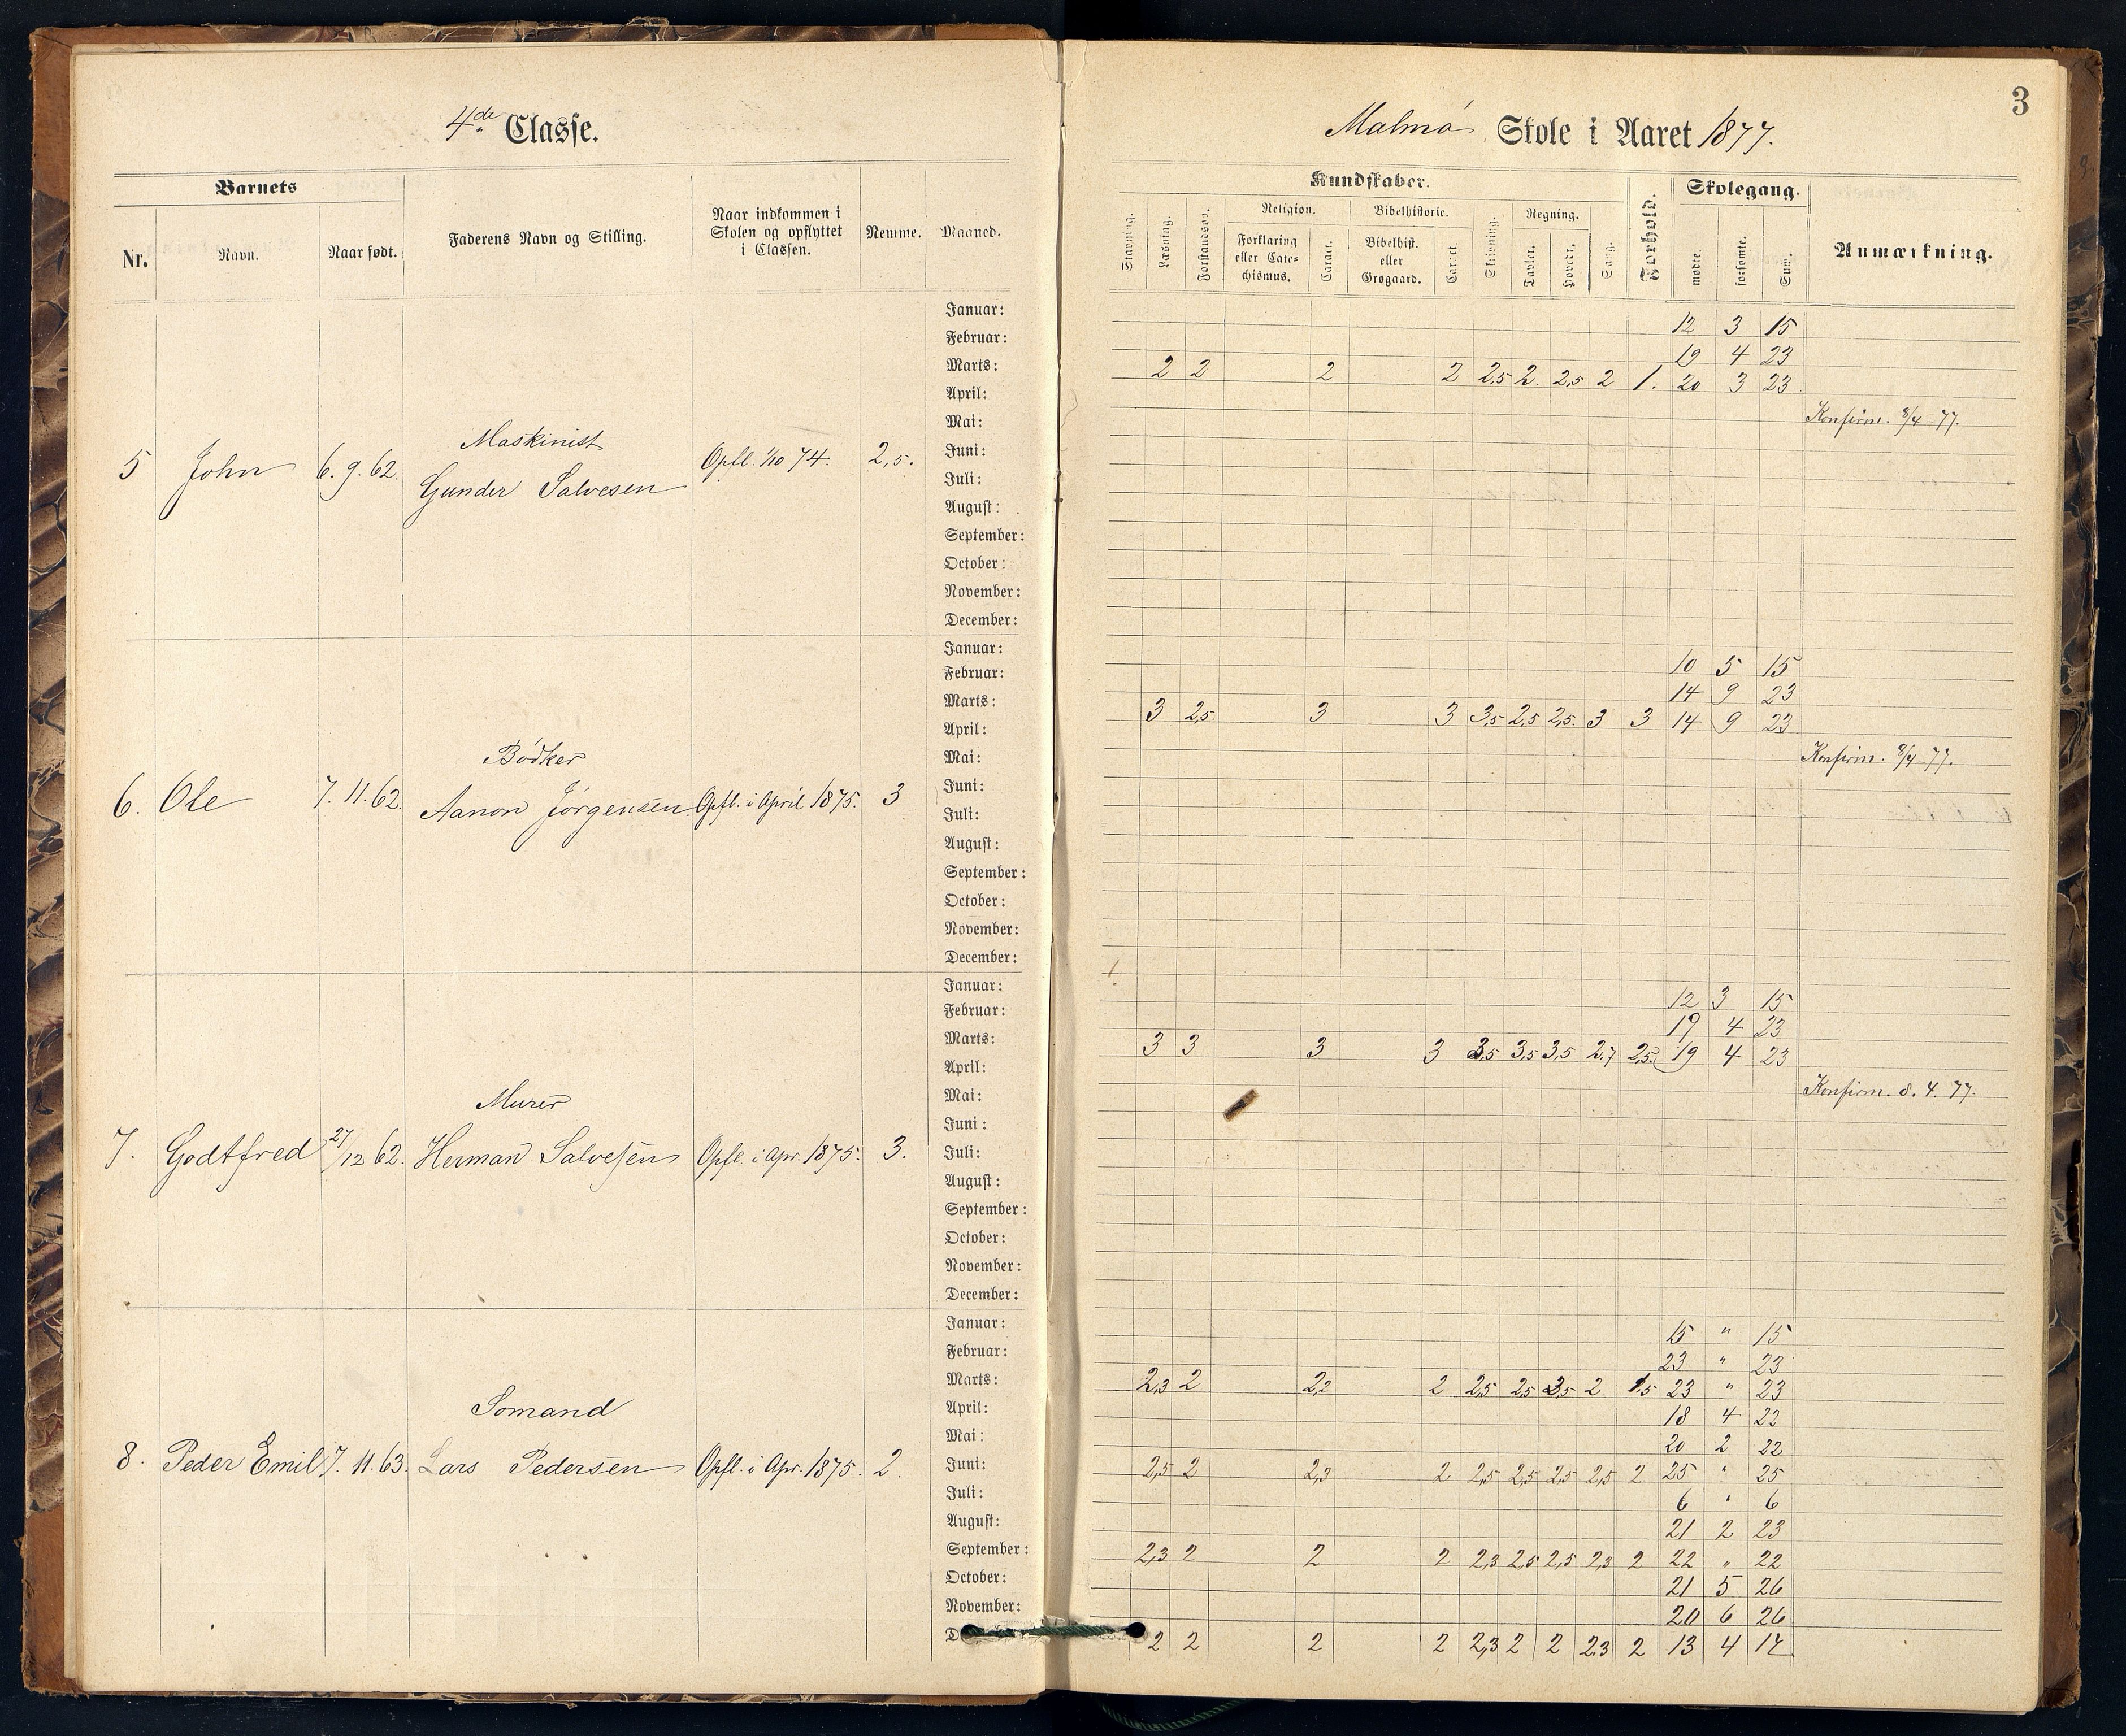 4de Classe.
Barnets
Nr. Navn. Naar født. Faderens Navn og Stilling. Naar indkommen i Skolen og opflyttet i Classen. Nemme. Maaned.
Januar:
Februar:
Marts:
April:
Mai:
Maskinist
5 John 6.9.62. Gunder Salvesen Opfl. 1/10 74. 2,5.
Juni:
Juli:
August:
September:
October:
November:
December:
Januar:
Februar:
Marts:
April:
Mai:
Bödker
6. Ole 7.11.62. Aanon Jörgensen Opfl. i April 1875. 3
Juni:
Juli:
August:
September:
October:
November:
December:
Januar:
Februar:
Marts:
April:
Mai:
Juni:
Murer
7. Godtfred 27/12 62. Herman Salvesen Opfl. i Apr. 1875. 3.
Juli:
August:
September:
October:
November:
December:
Januar:
Februar:
Marts:
April:
Mai:
Somand
8. Peder Emil 7.11.63. Lars Pedersen Opfl. i Apr. 1875. 2.
Juni:
Juli:
August:
September:
October:
November:
D
3
Malmö Skole i Aaret 1877.
Kundskaber. Forhold. Skolegang. Anmærkning.
Stavning. Læsning. Forstandsøv. Religion. Bibelhistorie. Skrivning. Regning. Sang. mødte. forsømte. Sum.
Forklaring eller Catechismus. Caract. Bibelhist. eller Grøgaard. Caract. Tavler. Hovedr.
12 3 15
19 4 23
2 2 2 2 2,5 2 2,5 2 1. 20 3 23
Konfirm. 8/4 77.
10 5 15
14 9 23
3 2,5 3 3 3,5 2,5 2,5 3 3 14 9 23
Konfirm. 8/4 77.
12 3 15
19 4 23
3 3 3 3 3,5 3,5 3,5 2,7 2,5 19 4 23
Konfirm. 8. 4. 77.
15 " 15
23 " 23
2,3 2 2,2 2 2,5 2,5 3,5 2 1,5 23 " 23
18 4 22
20 2 22
2,5 2 2,3 2 2,5 2,5 2,5 2,5 2 25 " 25
6 " 6
21 2 23
2,3 2 2 2 2,3 2,5 2,5 2,3 2 22 " 22
21 5 26
20 6 26
2 2 2 2 2,3 2 2 2,3 2 13 4 17